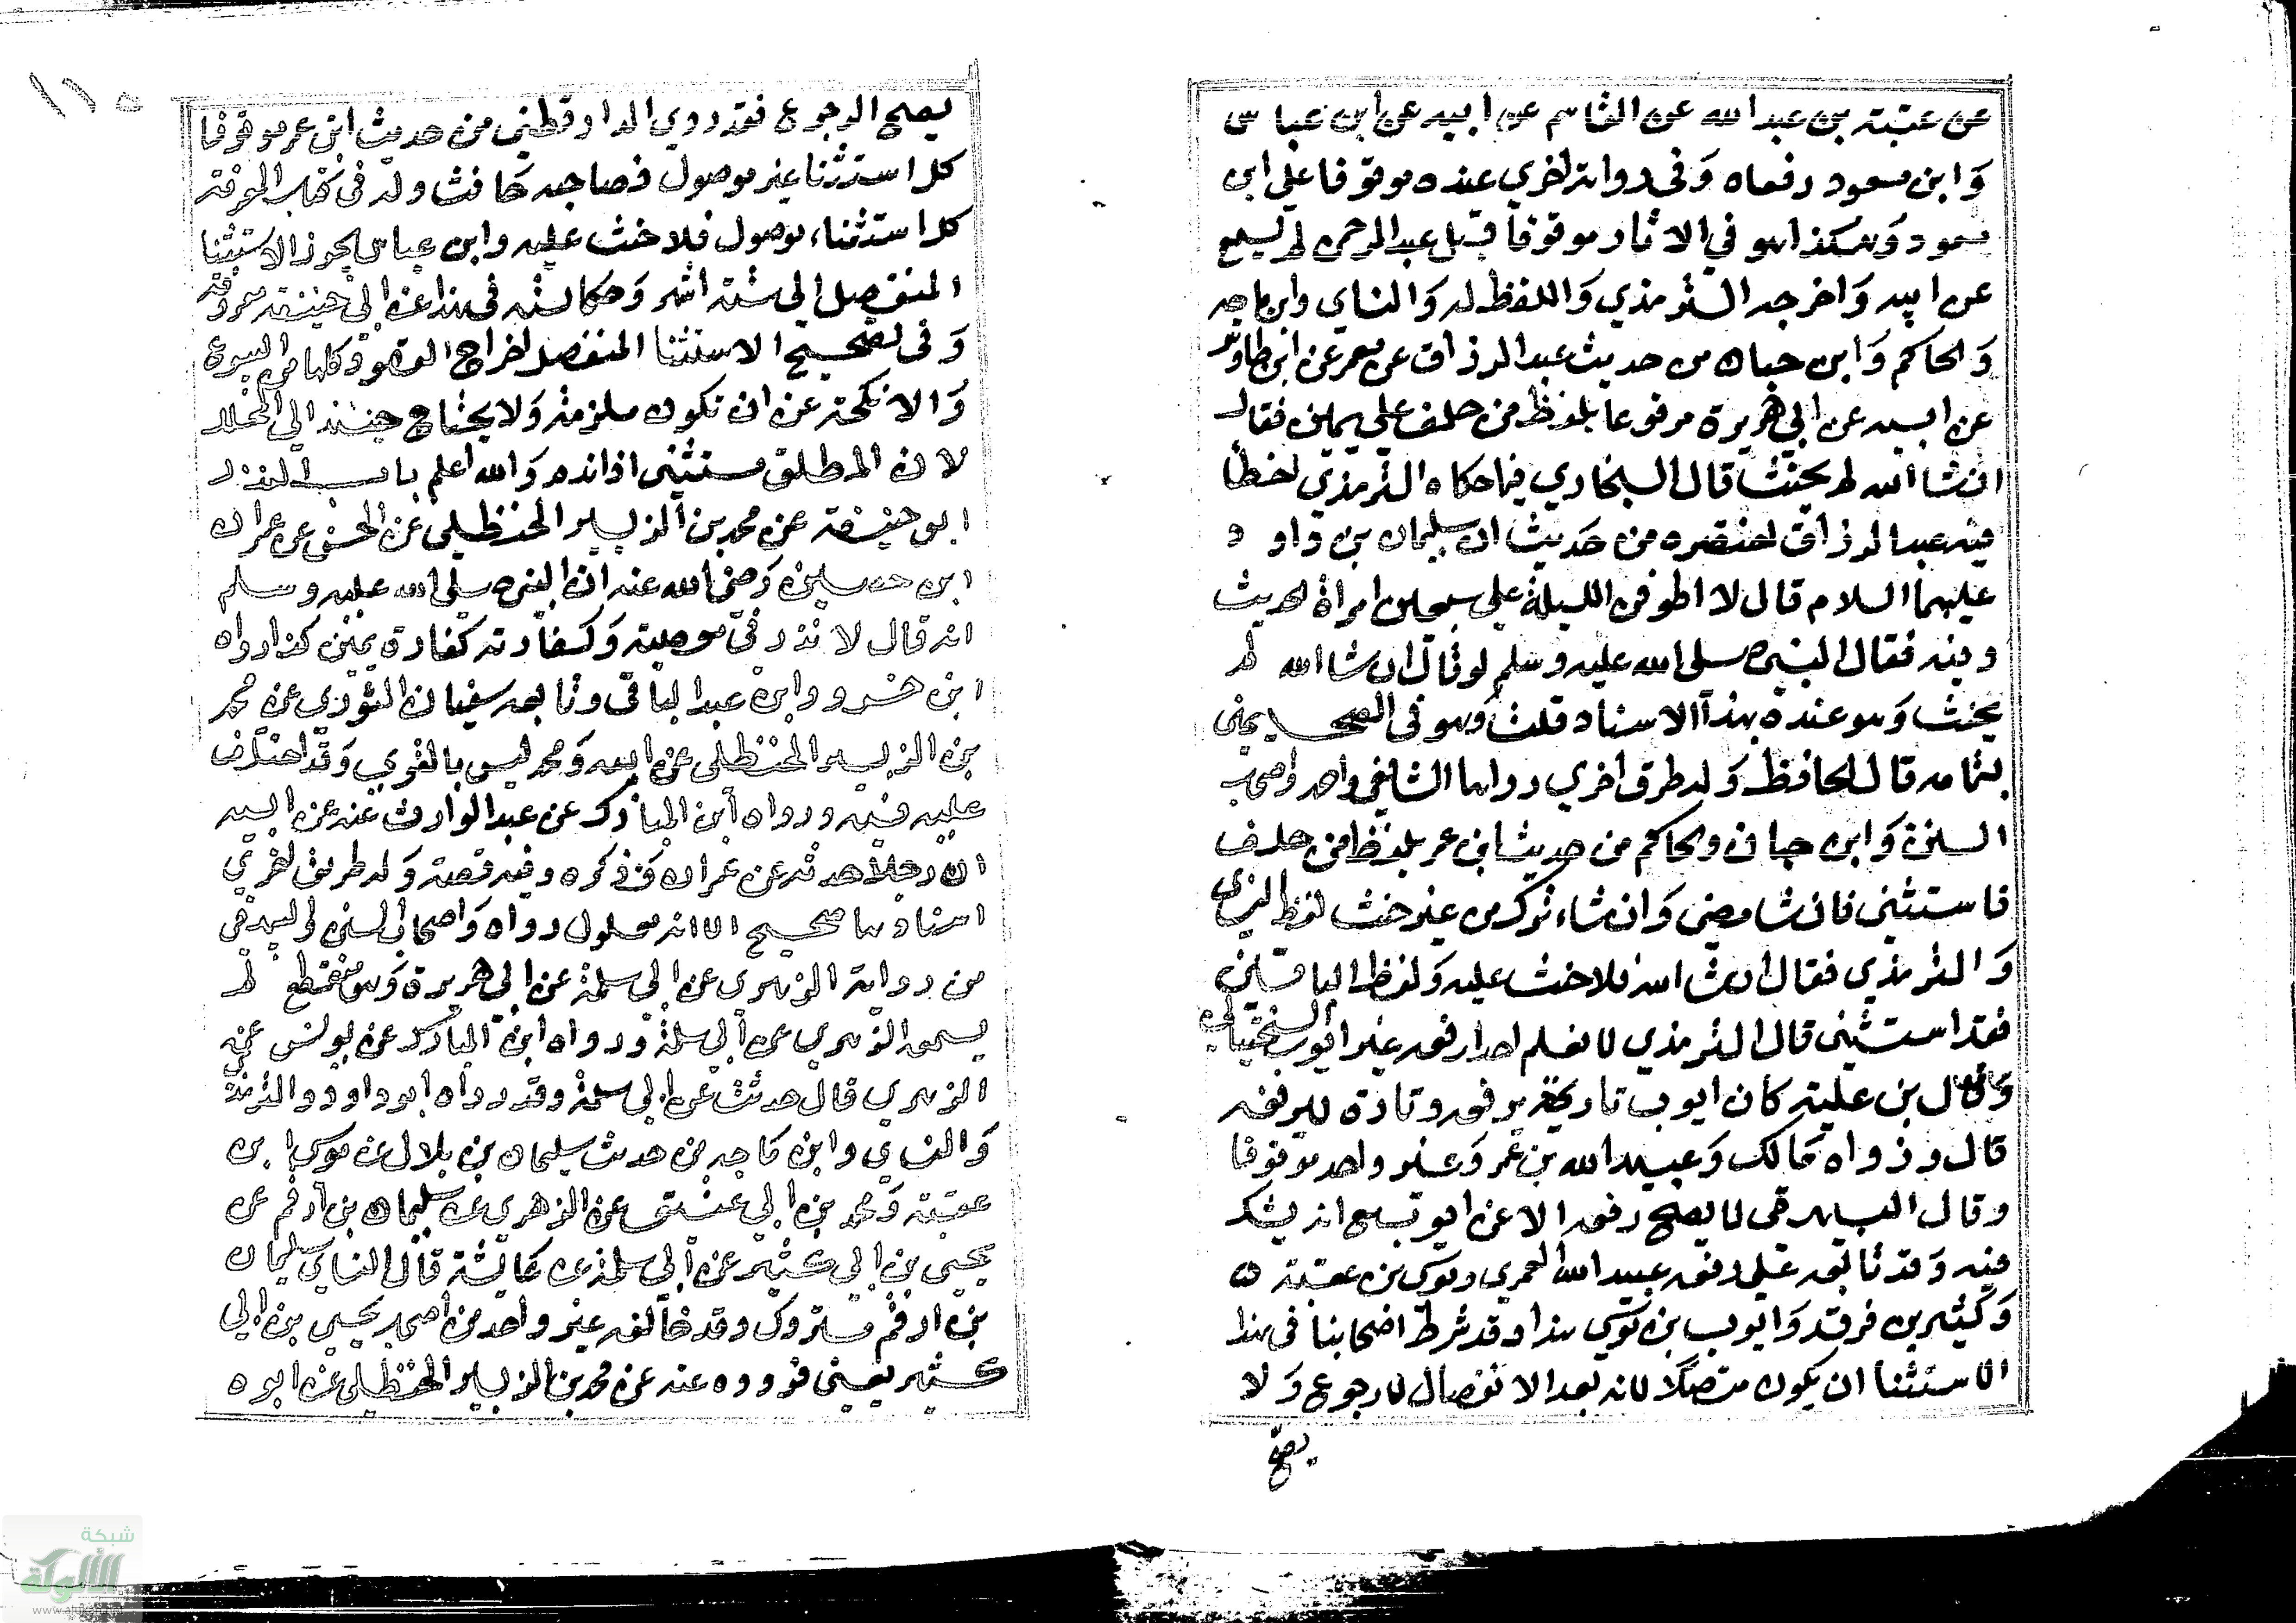 عن عتبة بن عبد الله عن القاسم عن ابيه عن ابن عباس
وابن مسعود رفعاه وفى رواية اخري عنده موقوفا علي ابن
مسعود وهكذا هو في الاثار موقوفا قيل عبد الرحمن لم يسمع
عن ابيه واخرجه الترمذي واللفظ له والنساي وابن ماجه
والحاكم وابن حبان من حديث عبد الرزاق عن معمر عن ابن طاوس
عن ابيه عن ابي هريرة مرفوعا بلفظ من حلف علي يمين فقال
ان شا الله لم يحنث قال البخاري فيما حكاه الترمذي اخطأ
فيه عبد الرزاق اختصره من حديث ان سليمان بن داود
عليهما السلام قال لاطوفن الليلة علي سبعين امراة الحديث
وفيه فقال النبي صلى الله عليه وسلم لو قال ان شا الله لم
يحنث وهو عنده بهذا الاسناد قلت وهو فى الصحيحين
بتمامه قال الحافظ وله طرق اخري رواها الشافعي واحمد واصحاب
السنن وابن حبان والحاكم من حديث ابن عمر بلفظ من حلف
فاستثنى فان شا مضى وان شاء ترك من غير حنث لفظ النساي
والترمذي فقال ان شا الله فلا حنث عليه ولفظ الباقين
فقد استثنى قال الترمذي لا نعلم احدا رفعه غير ايوب السختياني
وقال ابن علية كان ايوب تارة يرفعه وتارة لا يرفعه
قال ورواه مالك وعبيد الله بن عمر وغير واحد موقوفا
وقال البيهقى لا يصح رفعه الا عن ايوب مع انه يشك
فيه وقد تابعه علي رفعه عبيد الله العمري وموسى بن عقبة
وكثير بن فرقد وايوب بن موسي هذا وقد شرط اصحابنا فى هذا
الاستثنا ان يكون متصلا لانه بعد الانفصال رجوع ولا
يصح
١١٥
يصح الرجوع فقد روي الدارقطني من حديث ابن عمر موقوفا
كل استثنا غير موصول فصاحبه حانث وله فى كتاب المعرفة
كل استثناء موصول فلا حنث عليه وابن عباس يجوز الاستثنا
المنفصل الى ستة اشهر وحكايته فى هذا عن ابي حنيفة معروفة
وفى تصحيح الاستثنا المنفصل اخراج العقود كلها من البيوع
والانكحة عن ان تكون ملزمة ولا يحتاج حينئذ الي المحلل
لان المطلق يستثنى اذا ندم والله اعلم باب النذر
ابو حنيفة عن محمد بن الزبير الحنظلي عن الحسن عن عمران
ابن حصين رضى الله عنه ان النبي صلى الله عليه وسلم
انه قال لا نذر في معصية وكفارته كفارة يمين كذا رواه
ابن خسرو وابن عبد الباقى وتابعه سفيان الثوري عن محمد
بن الزبير الحنظلي عن ابيه ومحمد ليس بالقوي وقد اختلف
عليه فيه ورواه ابن المبارك عن عبد الوارث عنه عن ابيه
ان رجلا حدثه عن عمران فذكره وفيه قصة وله طريق اخري
اسنادها صحيح الا انه معلول رواه واصحاب السنن والبيهقي
من رواية الزهري عن ابي سلمة عن ابي هريرة وهو منقطع لم
يسمعه الزهري عن ابي سلمة ورواه ابن المبارك عن يونس عن
الزهري قال حدثت عن ابي سلمة وقد رواه ابو داود والترمذي
والنساي وابن ماجه من حديث سليمان بن بلال عن موسي ابن
عقبة ومحمد بن ابي عتيق عن الزهري عن سليمان بن ارقم عن
يحيى بن ابي كثير عن ابي سلمة عن عايشة قال النساي سليمان
بن ارقم متروك وقد خالفه غير واحد من اصحاب يحيى بن ابي
كثير يعني فرووه عنه عن محمد بن الزبير الحنظلي عن ابوه
شبكة
الألوكة